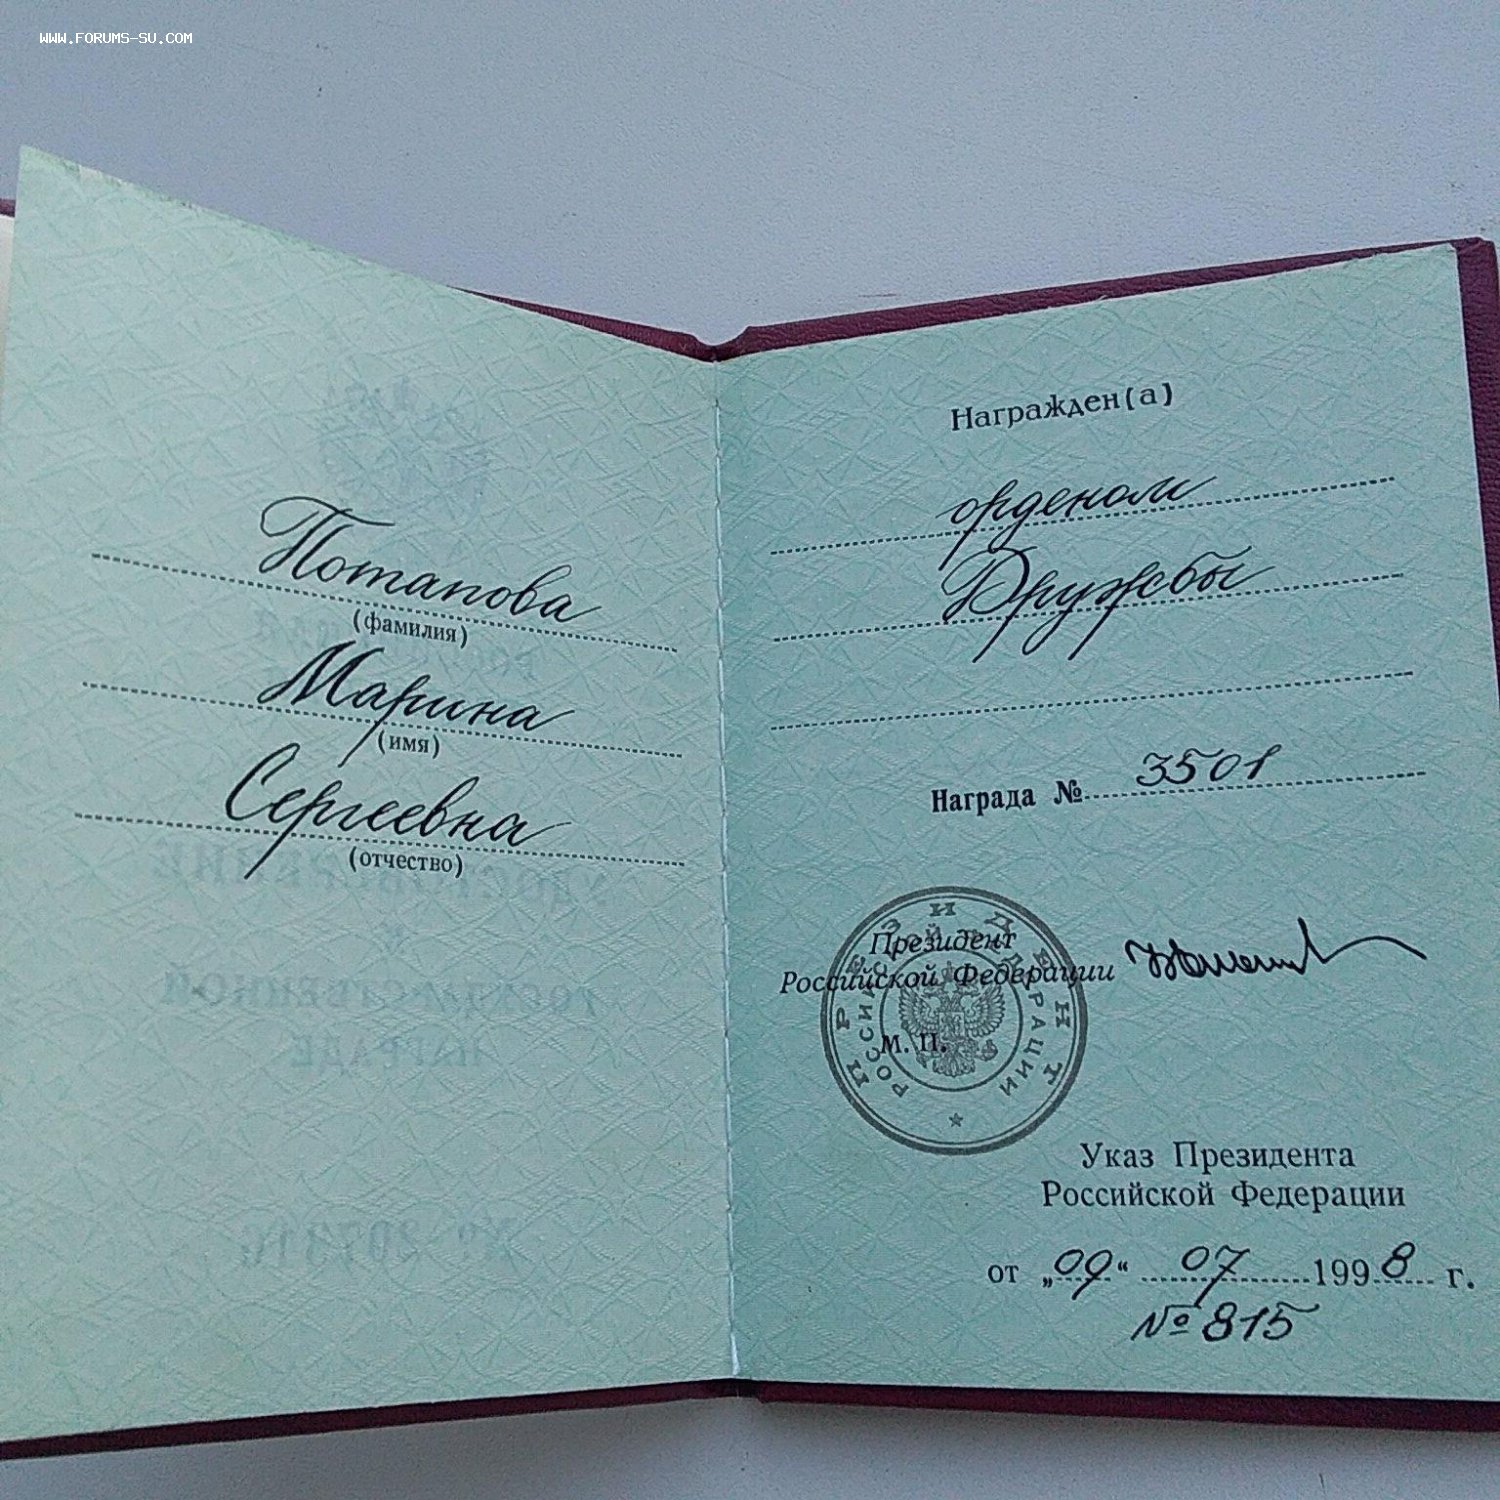 www.forums-su.com
Потапова
(фамилия)
Марина
(имя)
Сергеевна
(отчество)
Награжден(а)
орденом
Дружбы
Награда № 3501
ПРЕЗИДЕНТ
РОССИЙСКОЙ ФЕДЕРАЦИИ
Президент
Российской Федерации
М. П.
Указ Президента
Российской Федерации
от „09“ 07 1998 г.
№ 815